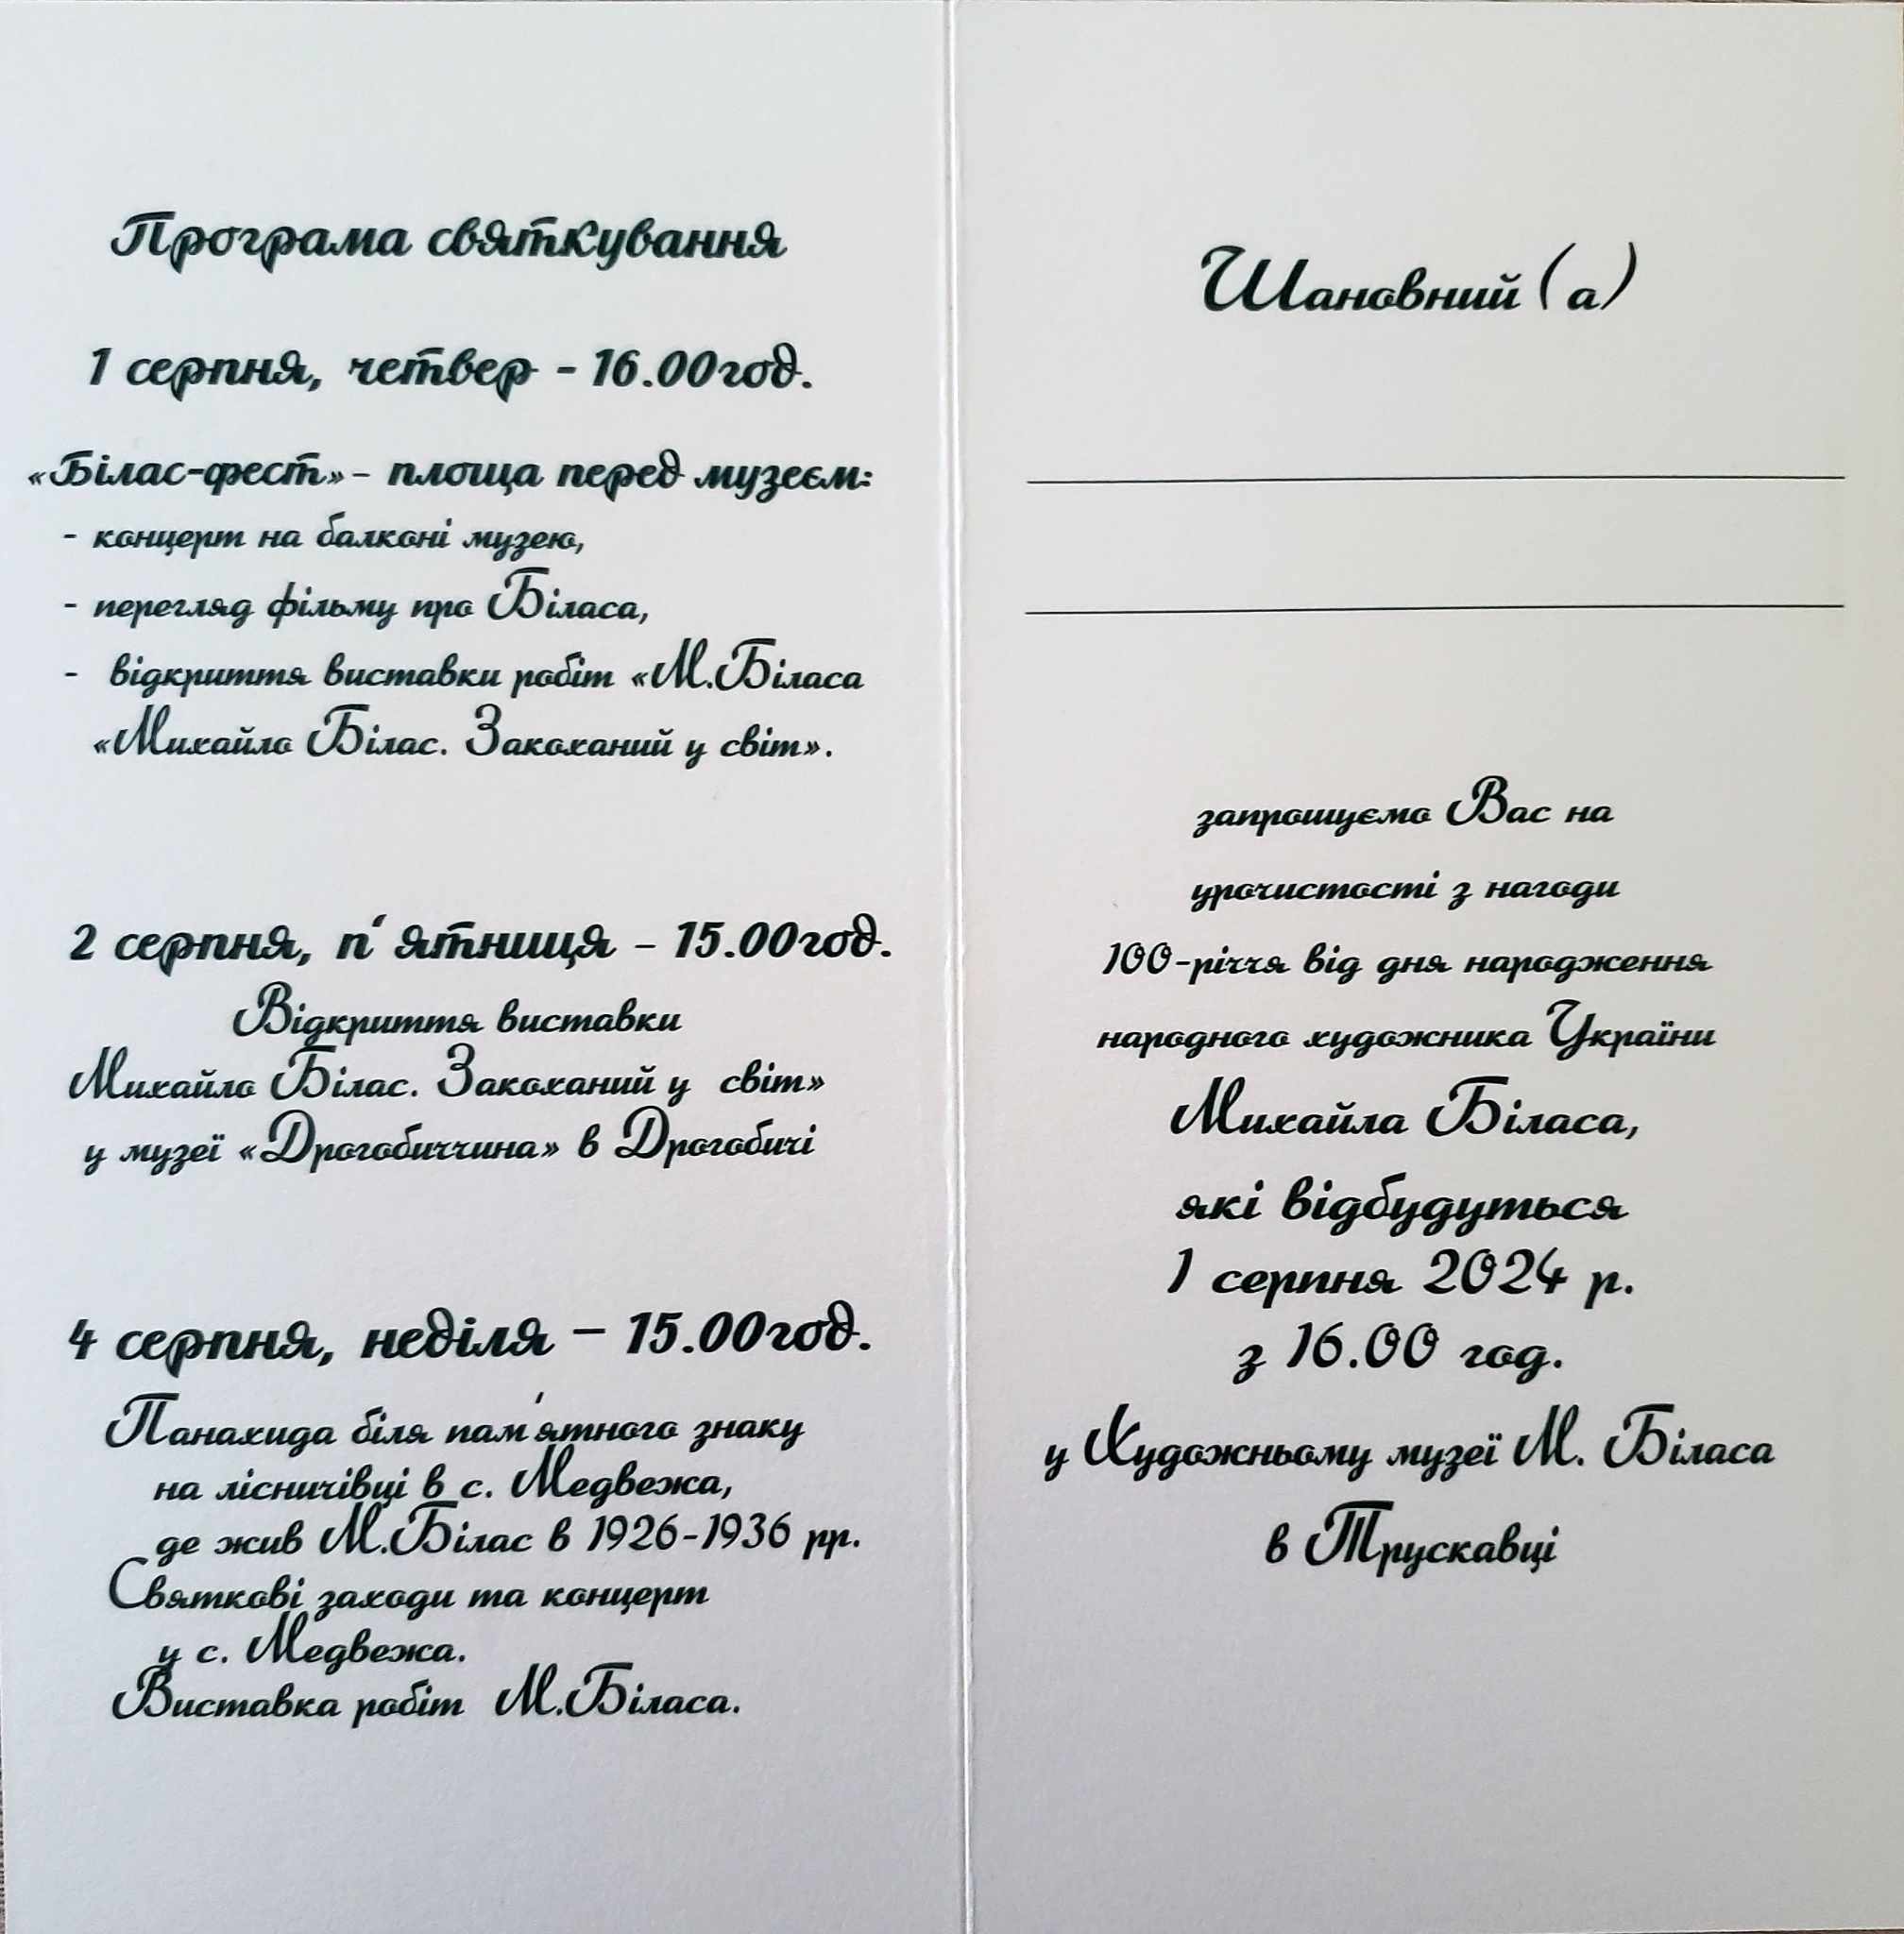 Програма святкування
1 серпня, четвер - 16.00год.
«Білас-фест» - площа перед музеєм:
- концерт на балконі музею,
- перегляд фільму про Біласа,
- відкриття виставки робіт «М.Біласа
«Михайло Білас. Закоханий у світ».
2 серпня, п‘ятниця – 15.00год.
Відкриття виставки
Михайло Білас. Закоханий у світ»
у музеї «Дрогобиччина» в Дрогобичі
4 серпня, неділя – 15.00год.
Панахида біля пам'ятного знаку
на лісничівці в с. Медвежа,
де жив М.Білас в 1926-1936 рр.
Святкові заходи та концерт
у с. Медвежа.
Виставка робіт М.Біласа.
Шановний (а)
запрошуємо Вас на
урочистості з нагоди
100-річчя від дня народження
народного художника України
Михайла Біласа,
які відбудуться
1 серпня 2024 р.
з 16.00 год.
у Художньому музеї М. Біласа
в Трускавці